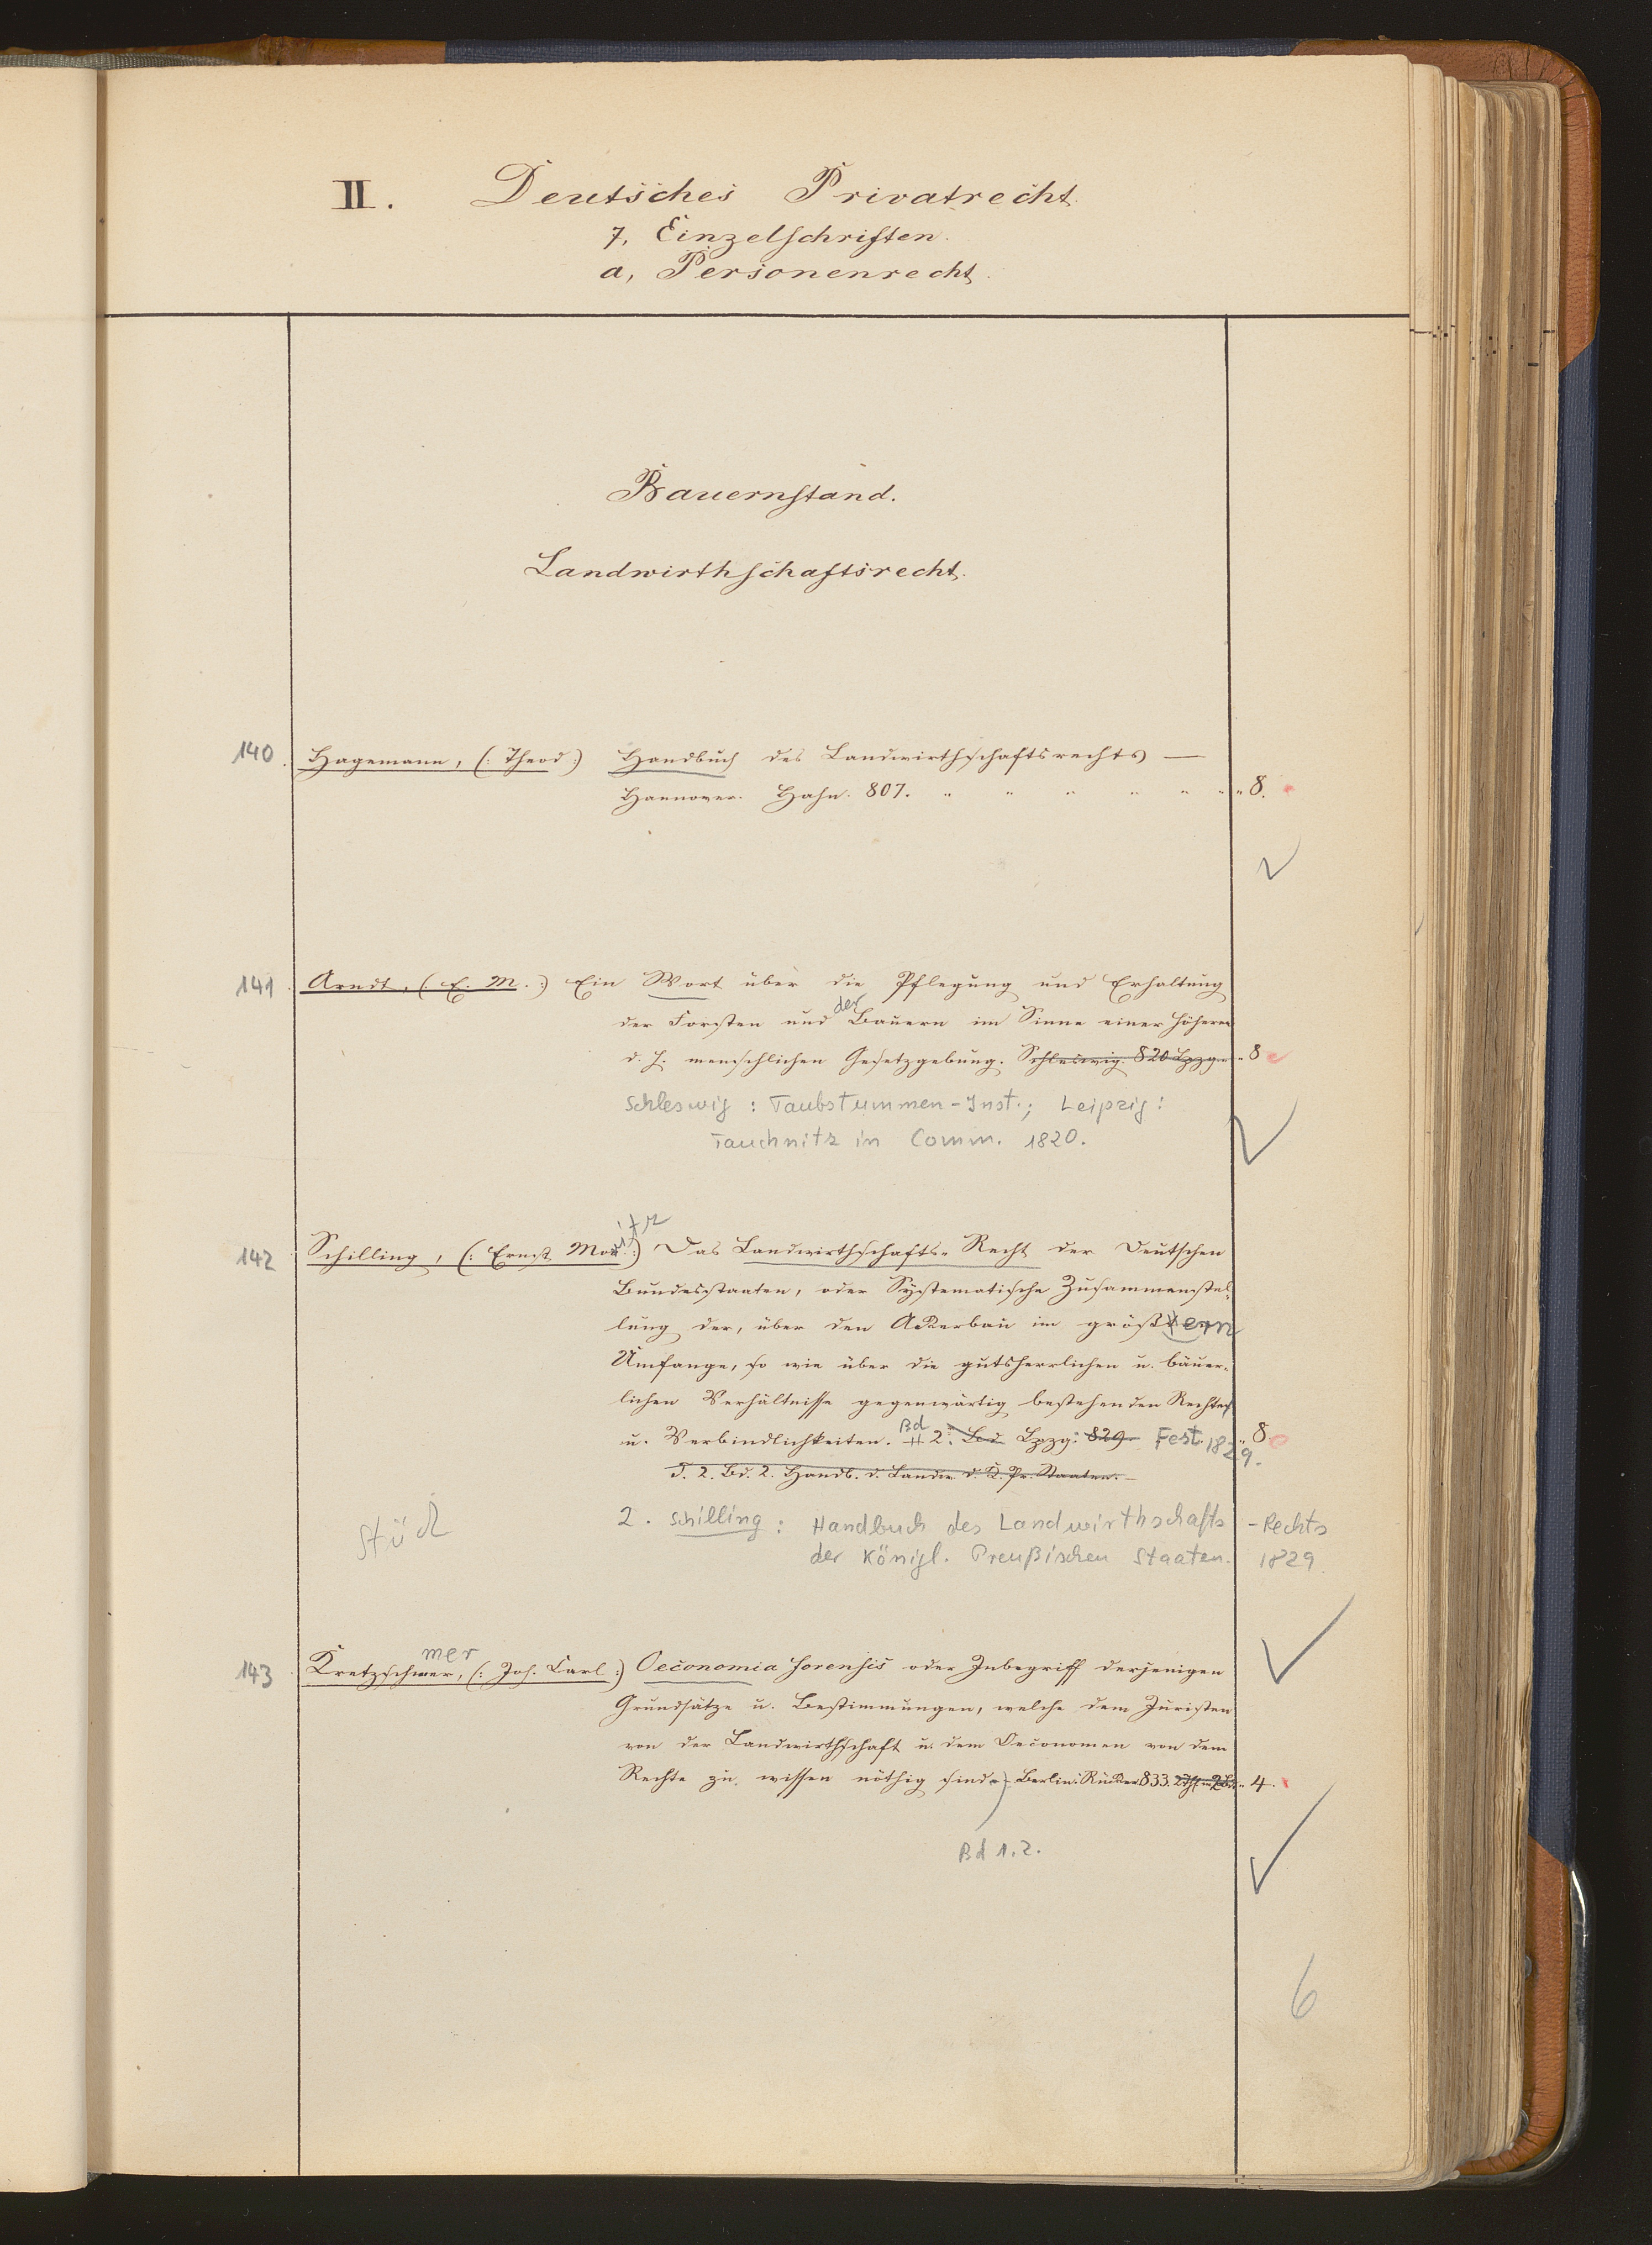 II. Deutsches Privatrecht.
7, Einzelschriften.
a, Personenrecht.
Bauernstand.
Landwirthschaftsrecht.
140 Hagemann, (: Theod :) Handbuch des Landwirthschaftsrechts —
Hannover. Hahn. 807. " " " " " " " 8.
141 Arndt, (: E. M. :) Ein Wort über die Pflegung und Erhaltung
der Forsten und der Bauern im Sinne einer höheren
d. h. menschlichen Gesetzgebung. Schleswig. 820 Lpzg. " 8
Schleswig : Taubstummen-Inst.; Leipzig :
Tauchnitz in Comm. 1820.
142 Schilling, (: Ernst Moritz :) Das Landwirthschafts-Recht der Deutschen
Bundesstaaten, oder Systematische Zusammenstel-
lung der, über den Ackerbau im größern
Umfange, so wie über die gutsherrlichen u. bäuer-
lichen Verhältnisse gegenwärtig bestehenden Rechte
u. Verbindlichkeiten. Bd 2. Bd. Lpzg: 829 Fest. 1829. " 8
T. 2. Bd. 2. Handb. d. Landw. d. K. Pr. Staaten. —
Stück 2. Schilling : Handbuch des Landwirthschafts - Rechts
der Königl. Preußischen Staaten. 1829
143 Kretzschmer, mer (: Joh. Carl :) Oeconomia forensis oder Inbegriff derjenigen
Grundsätze u. Bestimmungen, welche dem Juristen
von der Landwirthschaft u. dem Oeconomen von dem
Rechte zu wissen nöthig sind. Berlin: Rücker 833. " 4.
Bd 1.2.
6